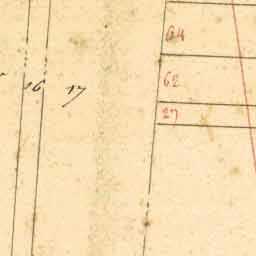 64
62
16 17
27